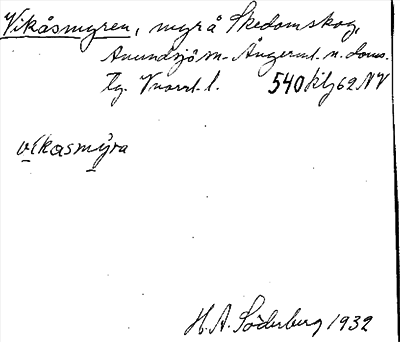 Vikåsmyren, myr å Skedomskog,
Anundsjö sn. Ångerml. n. doms.
lg. Vnorrl. l. 540 Klj 62 NV
vikasmýra
H. A. Söderberg 1932